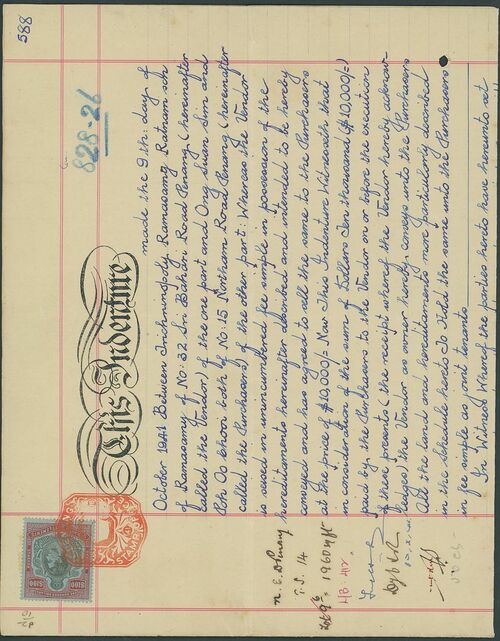 588
828-26
This Indenture
made the 9th: day of
October 1941 Between Trichinopoly Ramasamy Ratnam s/oh
of Ramasamy of No: 32 Sri Bahari Road Penang (hereinafter
called the Vendor) of the one part and Ong Guan Sim and
Loh Ço Khoon both of No: 15 Northam Road Penang (hereinafter
called the Purchasers) of the other part: Whereas the Vendor
is seised in unincumbered fee simple in possession of the
hereditaments hereinafter described and intended to be hereby
conveyed and has agreed to sell the same to the Purchasers
at the price of $10,000/= Now This Indenture Witnesseth that
in consideration of the sum of Dollars Ten thousand ($10000/=)
paid by the Purchasers to the Vendor on or before the execution
of these presents (the receipt whereof the Vendor hereby acknow-
ledges) the Vendor as owner hereby conveys unto the Purchasers
All the land and hereditaments more particularly described
in the Schedule hereto To Hold the same unto the Purchasers
in fee simple as joint tenants
In Witness Whereof the parties hereto have hereunto at
STAMP
$100
T.S. 14